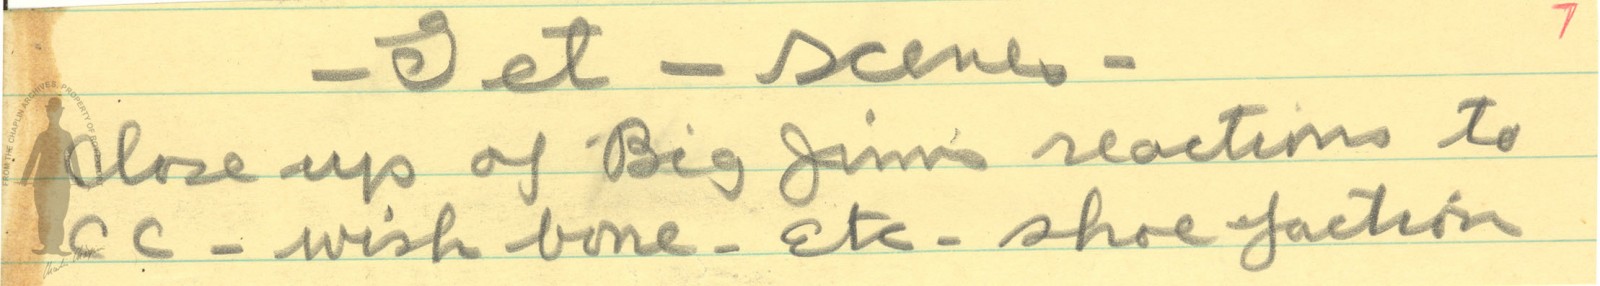 7
- Get - scenes -
Close up of Big Jim's reactions to
CC - wish bone - Etc - shoe faction
FROM THE CHAPLIN ARCHIVES, PROPERTY OF